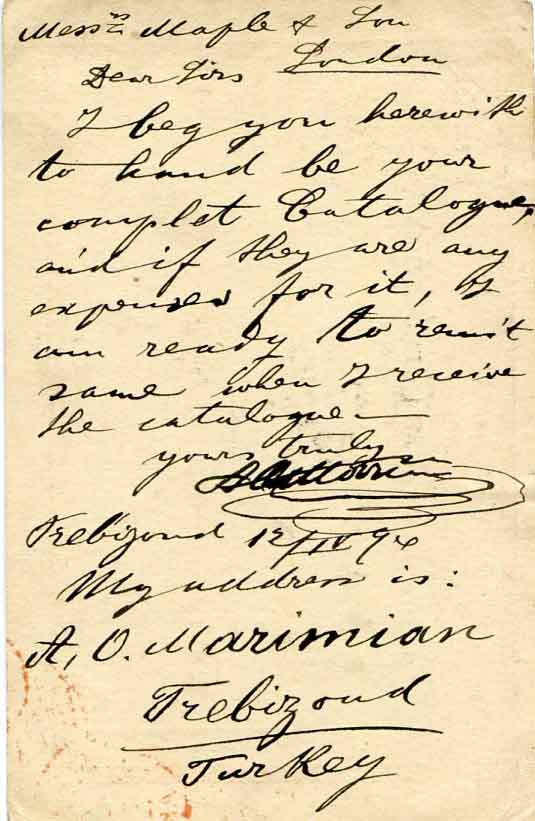 Messrs Maple & Son
London
Dear Sirs
I beg you herewith
to hand be your
complet Catalogue,
and if they are any
expenses for it, I
am ready to remit
same when I receive
the catalogue—
yours truly
Trebizond 12/IV 94
My address is:
A, O. Marimian
Trebizond
Turkey